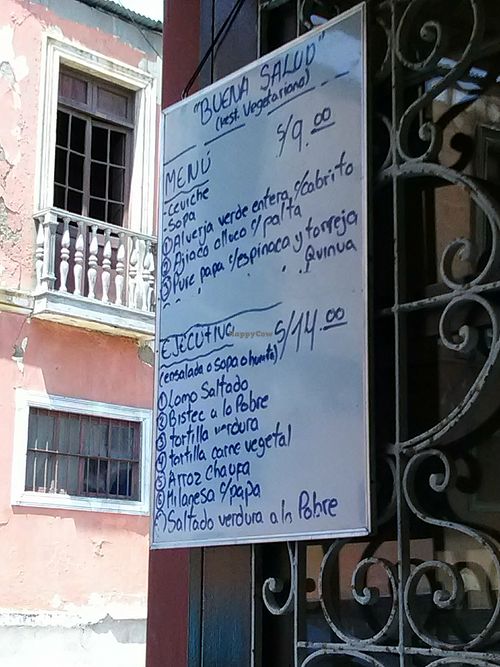 "BUENA SALUD"
(Rest. Vegetariano)
MENÚ S/9.00
-Ceviche
-Sopa
① Alverja verde entera c/Cabrito
② Ajiaco olluco c/palta
③ Pure papa c/espinaca y torreja
" " " " " Quinua
EJECUTIVO S/14.00
(ensalada o sopa o huevito)
① Lomo Saltado
② Bistec a lo Pobre
③ tortilla verdura
④ tortilla carne vegetal
⑤ Arroz chaufa
⑥ Milanesa c/papa
⑦ Saltado verdura a lo Pobre
HappyCow